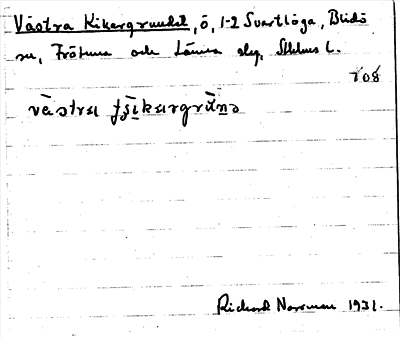 Västra Kikargrundet, ö, 1-2 Svartlöga, Blidö
sn, Frötuna och Länna slg, Sthlms l.
708
västra tʂikargrūnə
Richard Norrman 1931.